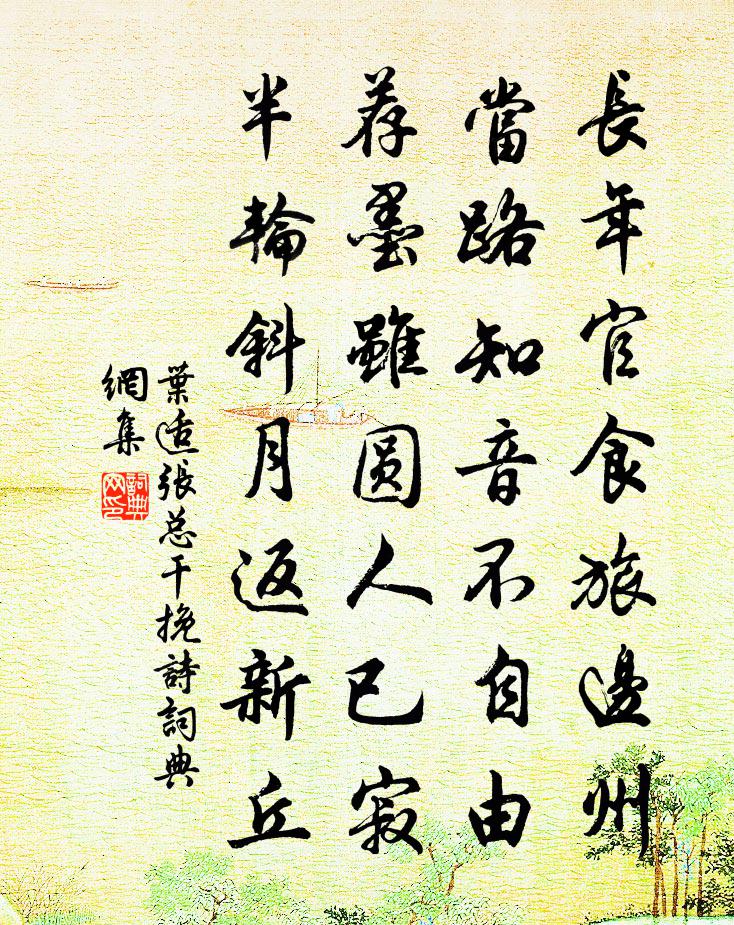 長年官食旅邊州
當路知音不自由
荐墨雖圆人已寂
半輪斜月返新丘
葉适張总干挽詩詞典
網集
詞典
网印